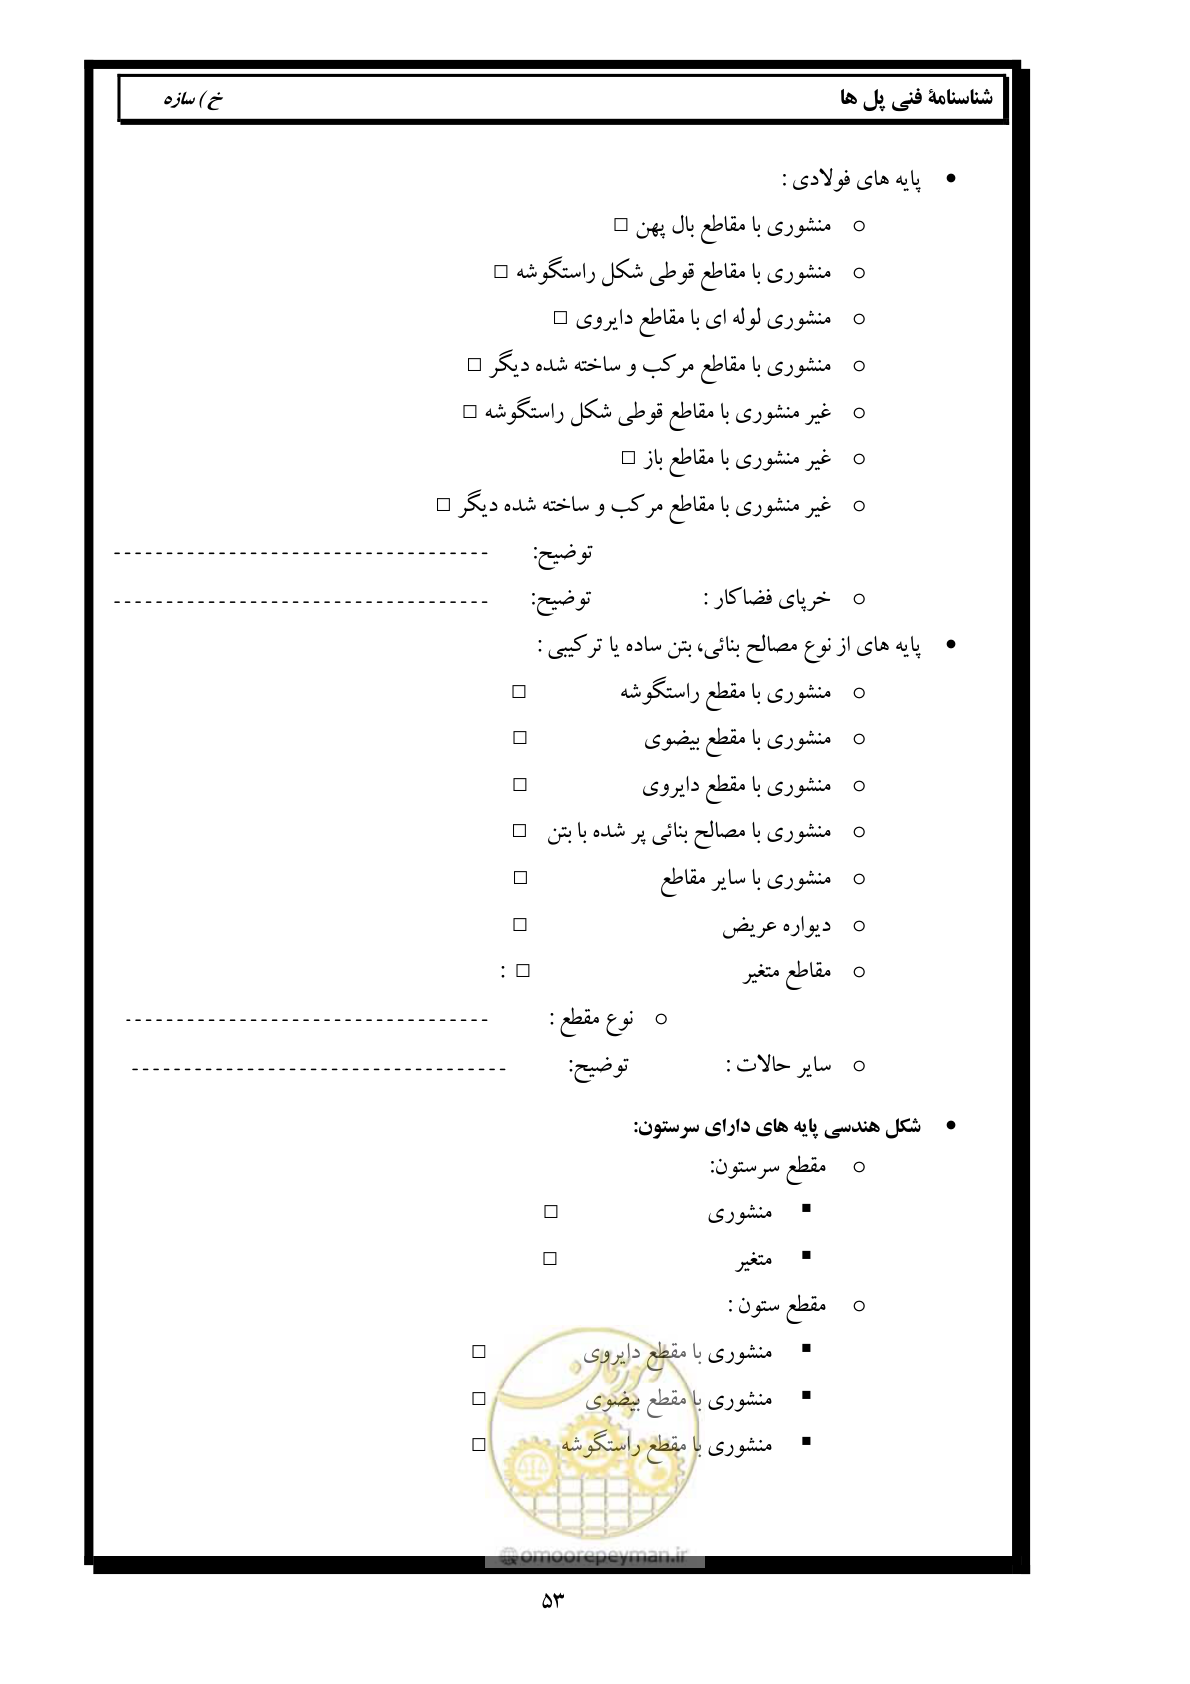 شناسنامۀ فنی پل ها
خ) سازه
• پایه های فولادی :
○ منشوری با مقاطع بال پهن □
○ منشوری با مقاطع قوطی شکل راستگوشه □
○ منشوری لوله ای با مقاطع دایروی □
○ منشوری با مقاطع مرکب و ساخته شده دیگر □
○ غیر منشوری با مقاطع قوطی شکل راستگوشه □
○ غیر منشوری با مقاطع باز □
○ غیر منشوری با مقاطع مرکب و ساخته شده دیگر □
توضیح: -----------------------------------
○ خرپای فضاکار : توضیح: -----------------------------------
• پایه های از نوع مصالح بنائی، بتن ساده یا ترکیبی :
○ منشوری با مقطع راستگوشه □
○ منشوری با مقطع بیضوی □
○ منشوری با مقطع دایروی □
○ منشوری با مصالح بنائی پر شده با بتن □
○ منشوری با سایر مقاطع □
○ دیواره عریض □
○ مقاطع متغیر □ :
○ نوع مقطع : ----------------------------------
○ سایر حالات : توضیح: -----------------------------------
• شکل هندسی پایه های دارای سرستون:
○ مقطع سرستون:
▪ منشوری □
▪ متغیر □
○ مقطع ستون :
▪ منشوری با مقطع دایروی □
▪ منشوری با مقطع بیضوی □
▪ منشوری با مقطع راستگوشه □
@omoorepeyman.ir
۵۳